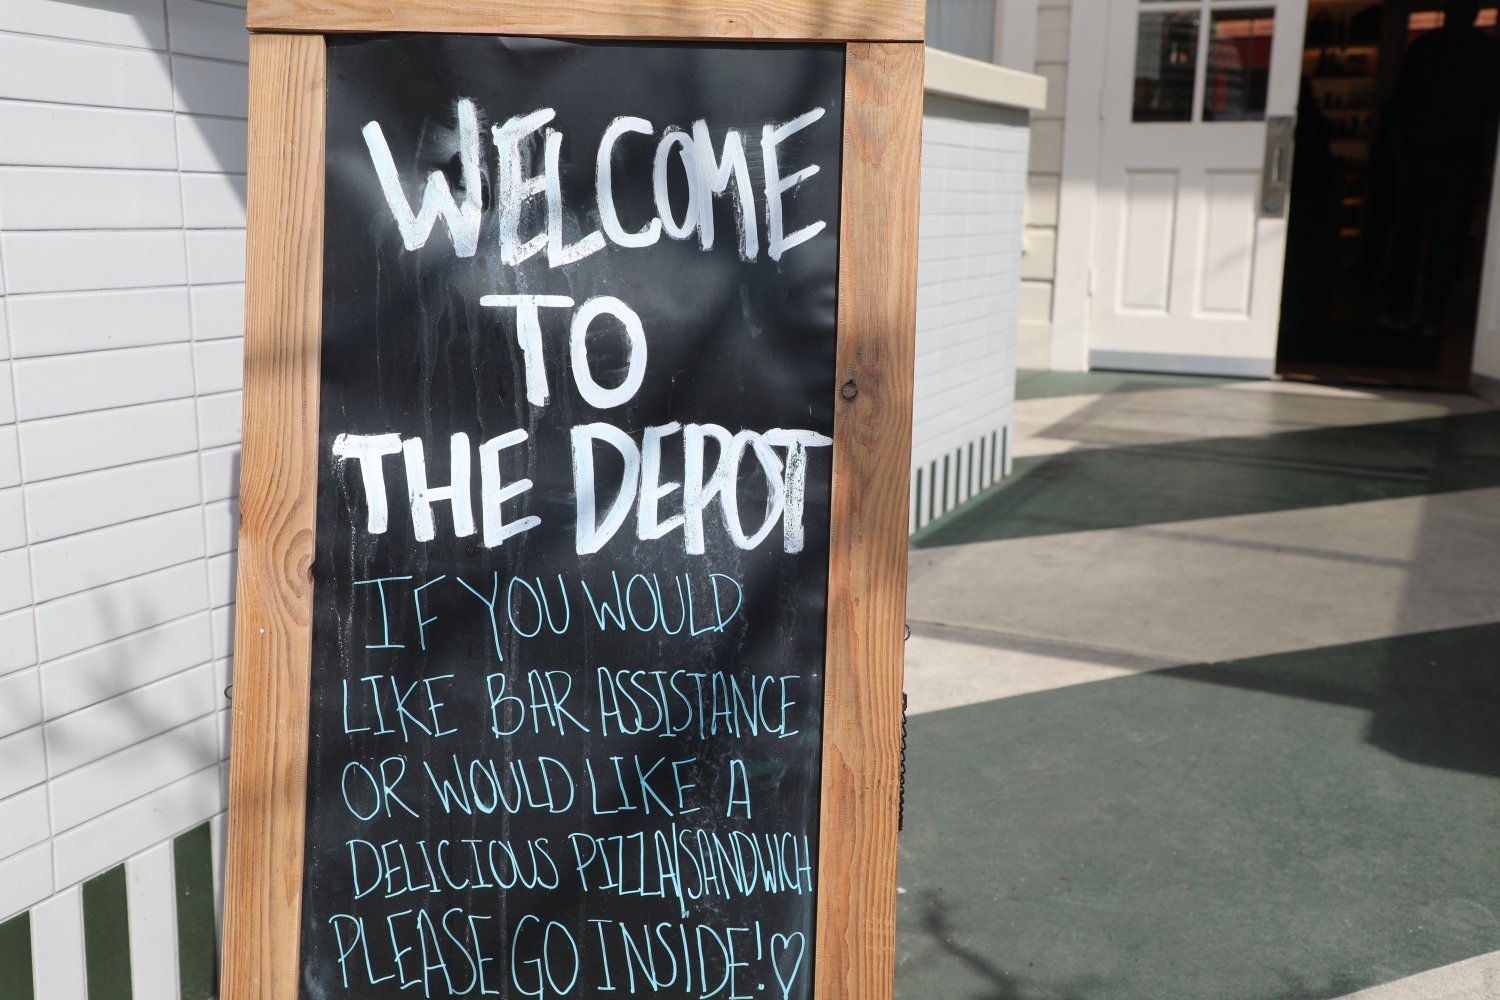 WELCOME
TO
THE DEPOT
IF YOU WOULD
LIKE BAR ASSISTANCE
OR WOULD LIKE A
DELICIOUS PIZZA/SANDWICH
PLEASE GO INSIDE! ♡